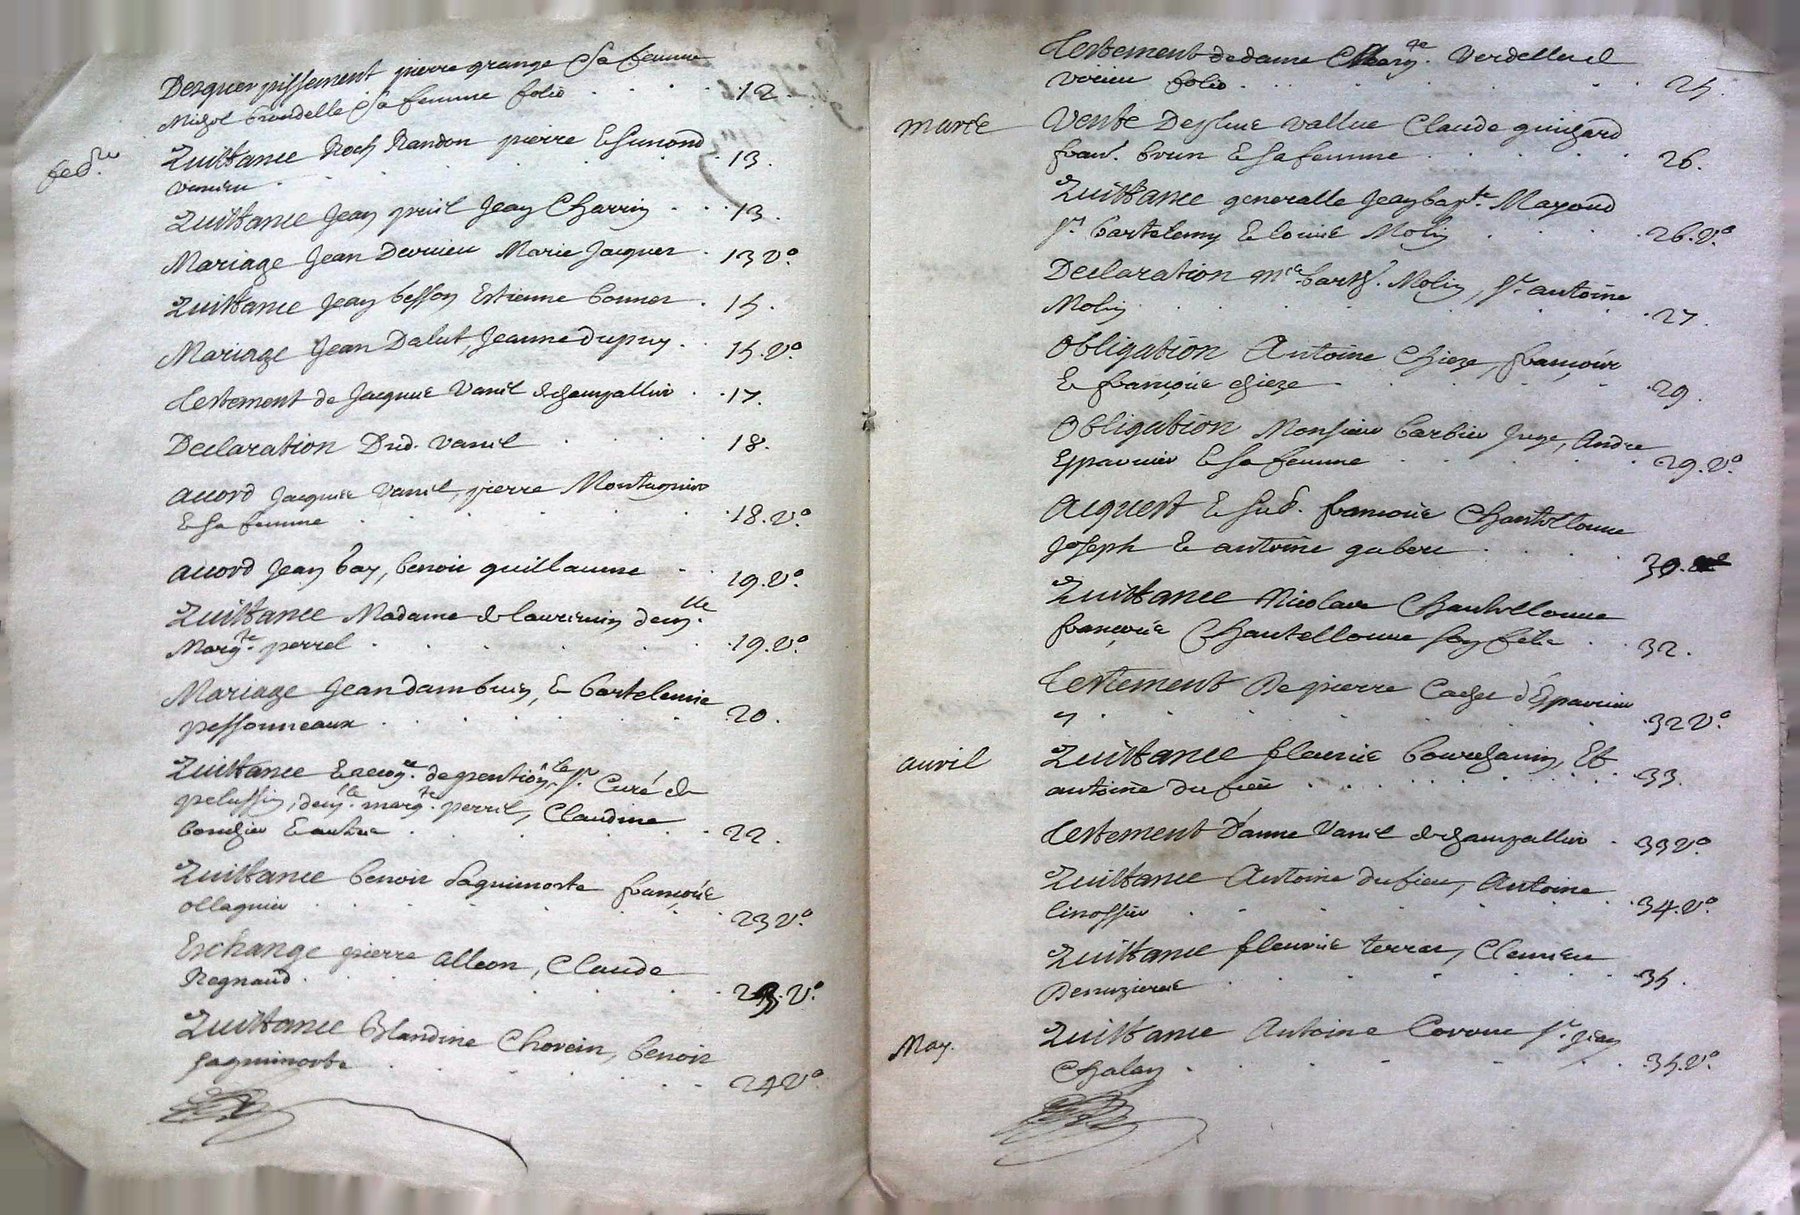 Desguerpissement pierre grange & sa femme
Michel Grandelle & sa femme folio 12.
feb.re Quittance Roch Randon pierre & Simond 13.
Verrieu
Quittance Jean priel Jean Charrin 13.
Mariage Jean Devrieu Marie Jacquier 13 v.o
Quittance Jean besson Estienne bonnet 15.
Mariage Jean Dalut, Jeanne dupuy 15. v.o
Testement de Jacques Vanil de champallier 17.
Declaration Dud. Vanil 18.
accord Jacques Vanil, pierre Montagnier
& sa femme 18. v.o
accord Jean bay, benoit guillaume 19. v.o
Quittance Madame de laurencin dem.lle
Marg.te perrel 19. v.o
Mariage Jean dambuin, & bartelemie
pessonneaux 20.
Quittance de pention, le s.r Curé de
pelussin, dem.le marg.te perril, Claudine
bouchier & autres 22.
Quittance benoit Paquimorte françoise
ollagnier 23 v.o
Eschange pierre alleon, Claude
Regnaud 23. v.o
Quittance Blandine Chorein, benoit
Paquimorte 24 v.o
Testement de dame Marg.te Verdelle
folio 25.
marce Vente Claude guichard
fran. brun & sa femme 26.
Quittance generalle Jean bap.te Mayoud
s.r bartelemy & louise Molin 26. v.o
Declaration m.re barth. Molin, s.r antoine
Molin 27.
Obligation Antoine Chieze, françois
& françoise chieze 29.
Obligation Monsieur barbier Juge, Andre
Epparvier & sa femme 29. v.o
acquest & sub. françoise Chantellouve
Joseph & antoine gabert 30.
Quittance Nicolas Chantellouve
françoise Chantellouve son fils 32.
Testement De pierre Cachet d'Epparvier
32 v.o
avril Quittance fleurie bourchanin, Et
antoine dufieu 33.
Testement D'anne Vanil de champallier 33 v.o
Quittance Antoine dufieu, Antoine
linossier 34. v.o
Quittance fleurie terras, Clemen
Denuzieres 35.
May. Quittance Antoine Coroue s.r jean
Chalan 35. v.o